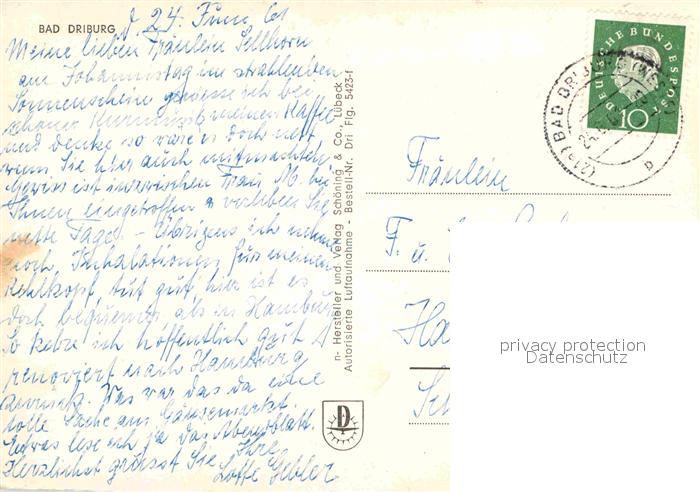 BAD DRIBURG
d. 24. Juni 61
Meine lieben Fräulein Sellhorn
am Johannistag im strahlenden
Sonnenschein geniesse ich bei
schöner Kurmusik meinen Kaffee
und denke so wäre es doch nett
wenn Sie hier auch mitmachten
Gewiss ist inzwischen Frau M. bei
Ihnen eingetroffen & verleben Sie
nette Tage - Übrigens ich nehme
noch Inhalationen für meinen
Kehlkopf, tut gut, hier ist es
doch bequemer als in Hamburg
So kehre ich hoffentlich gut
renoviert nach Hamburg
zurück. Was war das da eine
tolle Sache am Gänsemarkt.
Etwas lese ich ja das Abendblatt.
Herzlichst grüsst Sie Ihre
Lotte Gebler
n- Hersteller und Verlag Schöning & Co., Lübeck
Autorisierte Luftaufnahme - Bestell-Nr. Dri Flg. 5423-f
D
DEUTSCHE BUNDESPOST
10
(21a) BAD DRIBURG (WESTF)
b
Fräulein
F. u.
Ha
Sch
privacy protection
Datenschutz